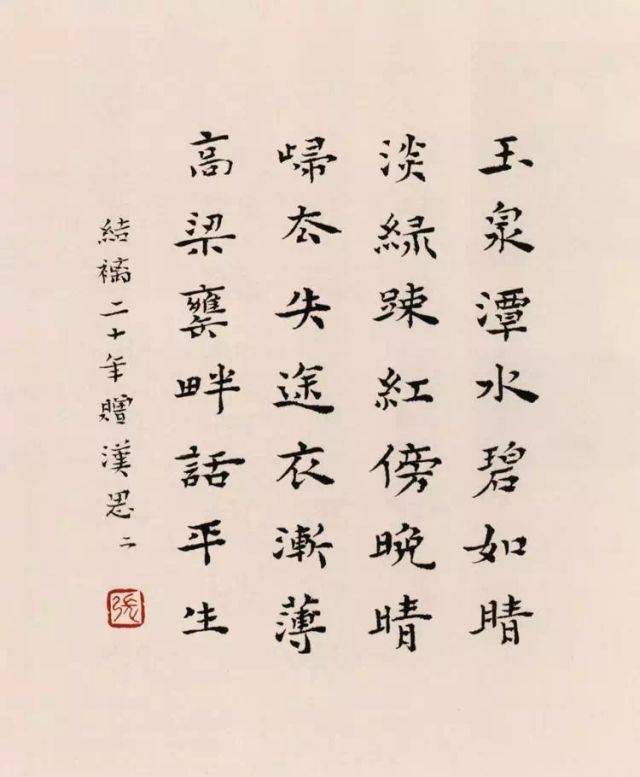 玉泉潭水碧如睛
淡綠踈紅傍晚晴
歸去失途衣漸薄
高梁甕畔話平生
結褵二十年贈漢思 二
張